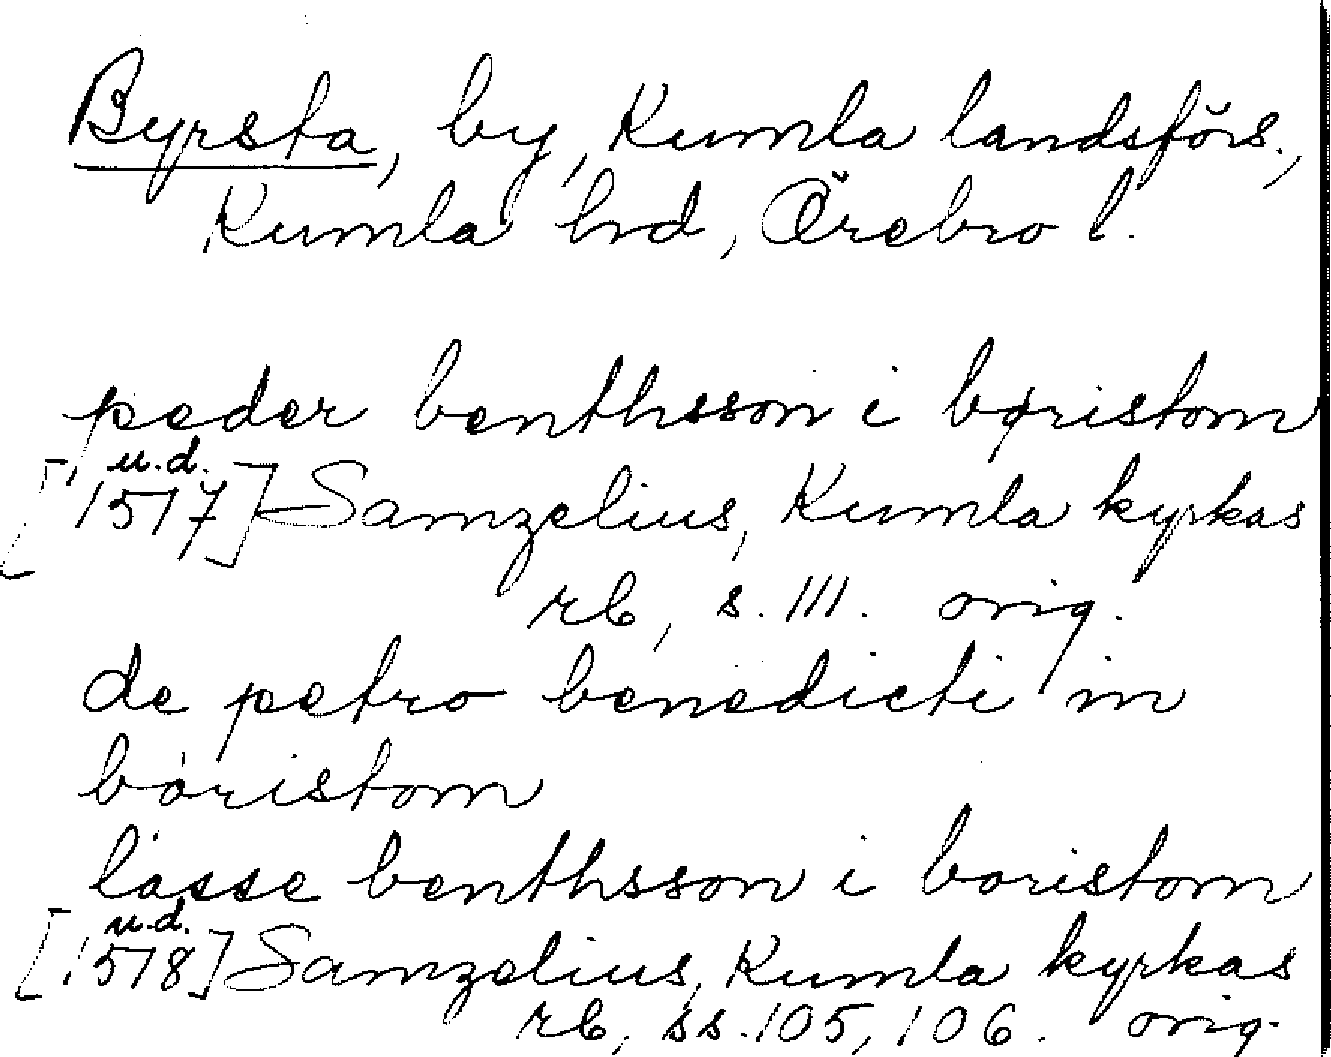 Byrsta, by, Kumla landsförs.,
Kumla hrd, Örebro l.
peder benthsson i børistom
u.d.
[1517] Samzelius, Kumla kyrkas
rb, s. 111. orig.
de petro benedicti in
boristom
lasse benthsson i boristom
u.d.
[1518] Samzelius, Kumla kyrkas
rb, ss. 105, 106. orig.